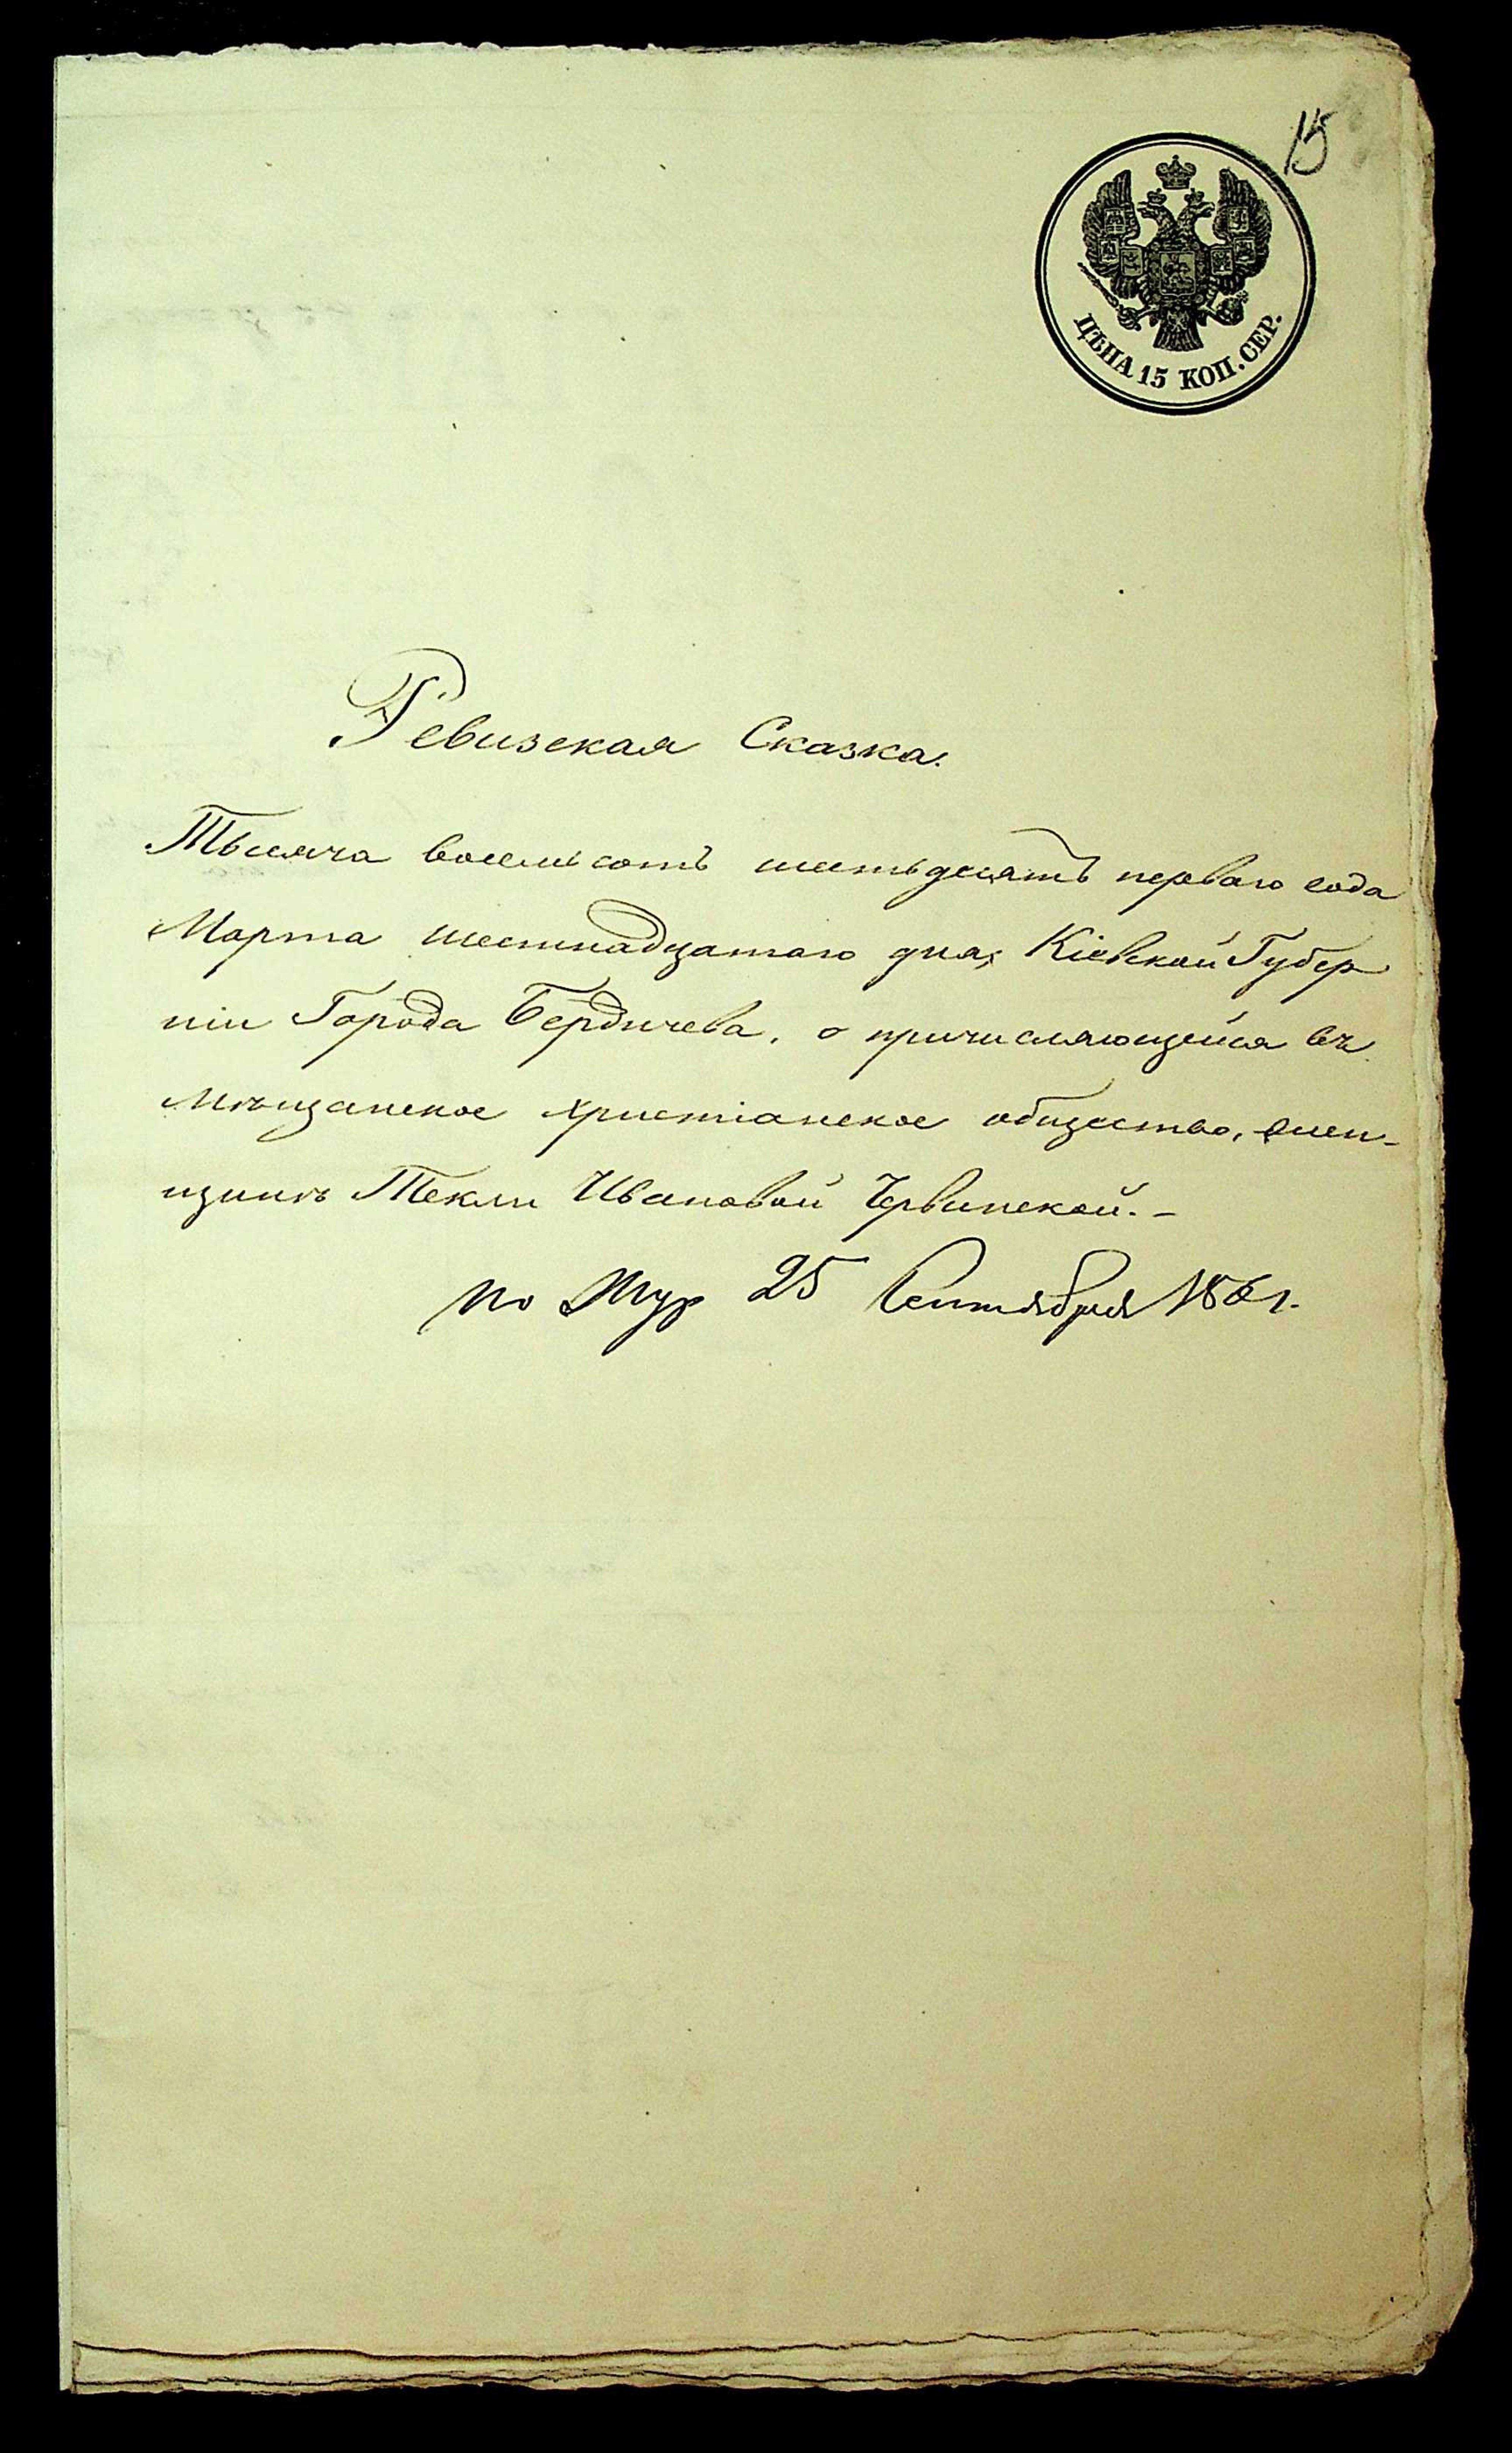 15
ЦѢНА 15 КОП. СЕР.
Ревизская Сказка.
Тысяча восемьсотъ шестьдесятъ перваго года
Марта шестнадцатаго дня, Кіевской Губер
ніи Города Бердичева, о причисляющейся въ
мѣщанское христіанское общество, жен-
щинѣ Текли Ивановой Червинской. -
по Жур 25 Сентября 1861.